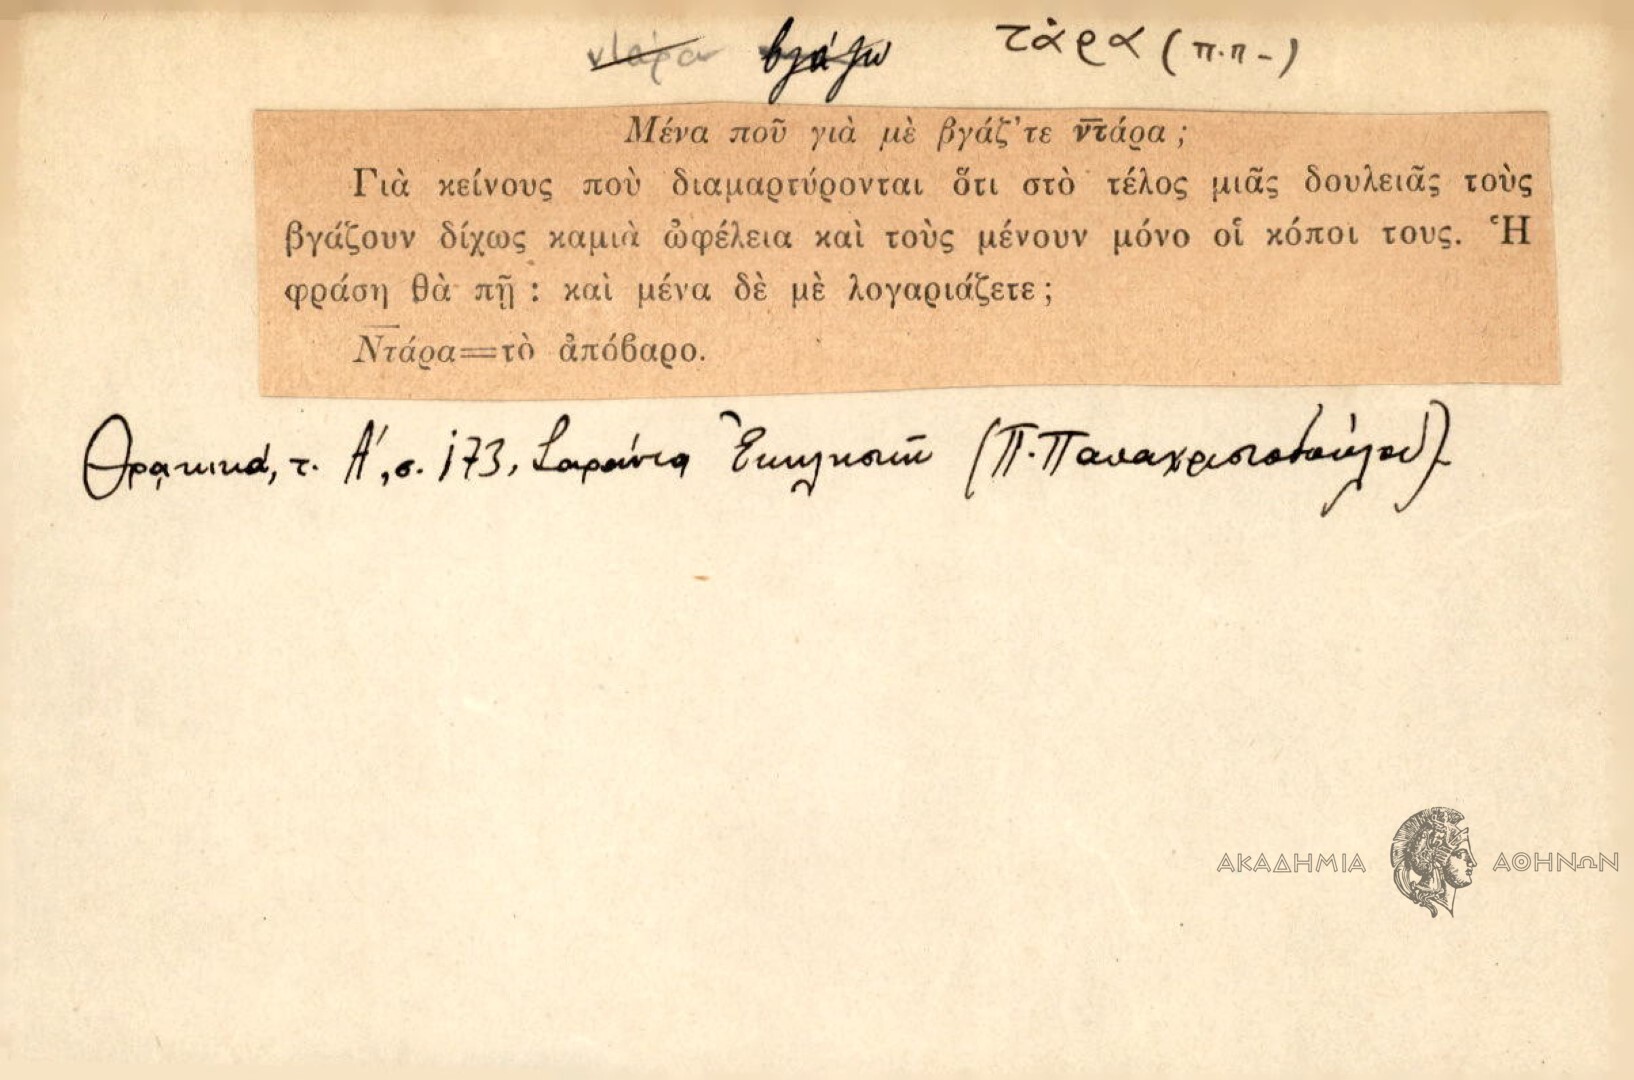 ντάρα βγάζω τάρα (π.π-)
Μένα ποῦ γιὰ μὲ βγάζ'τε ν̅τ̅άρα ;
Γιὰ κείνους ποὺ διαμαρτύρονται ὅτι στὸ τέλος μιᾶς δουλειᾶς τοὺς
βγάζουν δίχως καμιὰ ὠφέλεια καὶ τοὺς μένουν μόνο οἱ κόποι τους. Ἡ
φράση θὰ πῇ : καὶ μένα δὲ μὲ λογαριάζετε ;
Ν̅τ̅άρα=τὸ ἀπόβαρο.
Θρακικά, τ. Α', σ. 173, Σαράντα Ἐκκλησιῶν (Π. Παπαχριστοδούλου)
ΑΚΑΔΗΜΙΑ ΑΘΗΝΩΝ